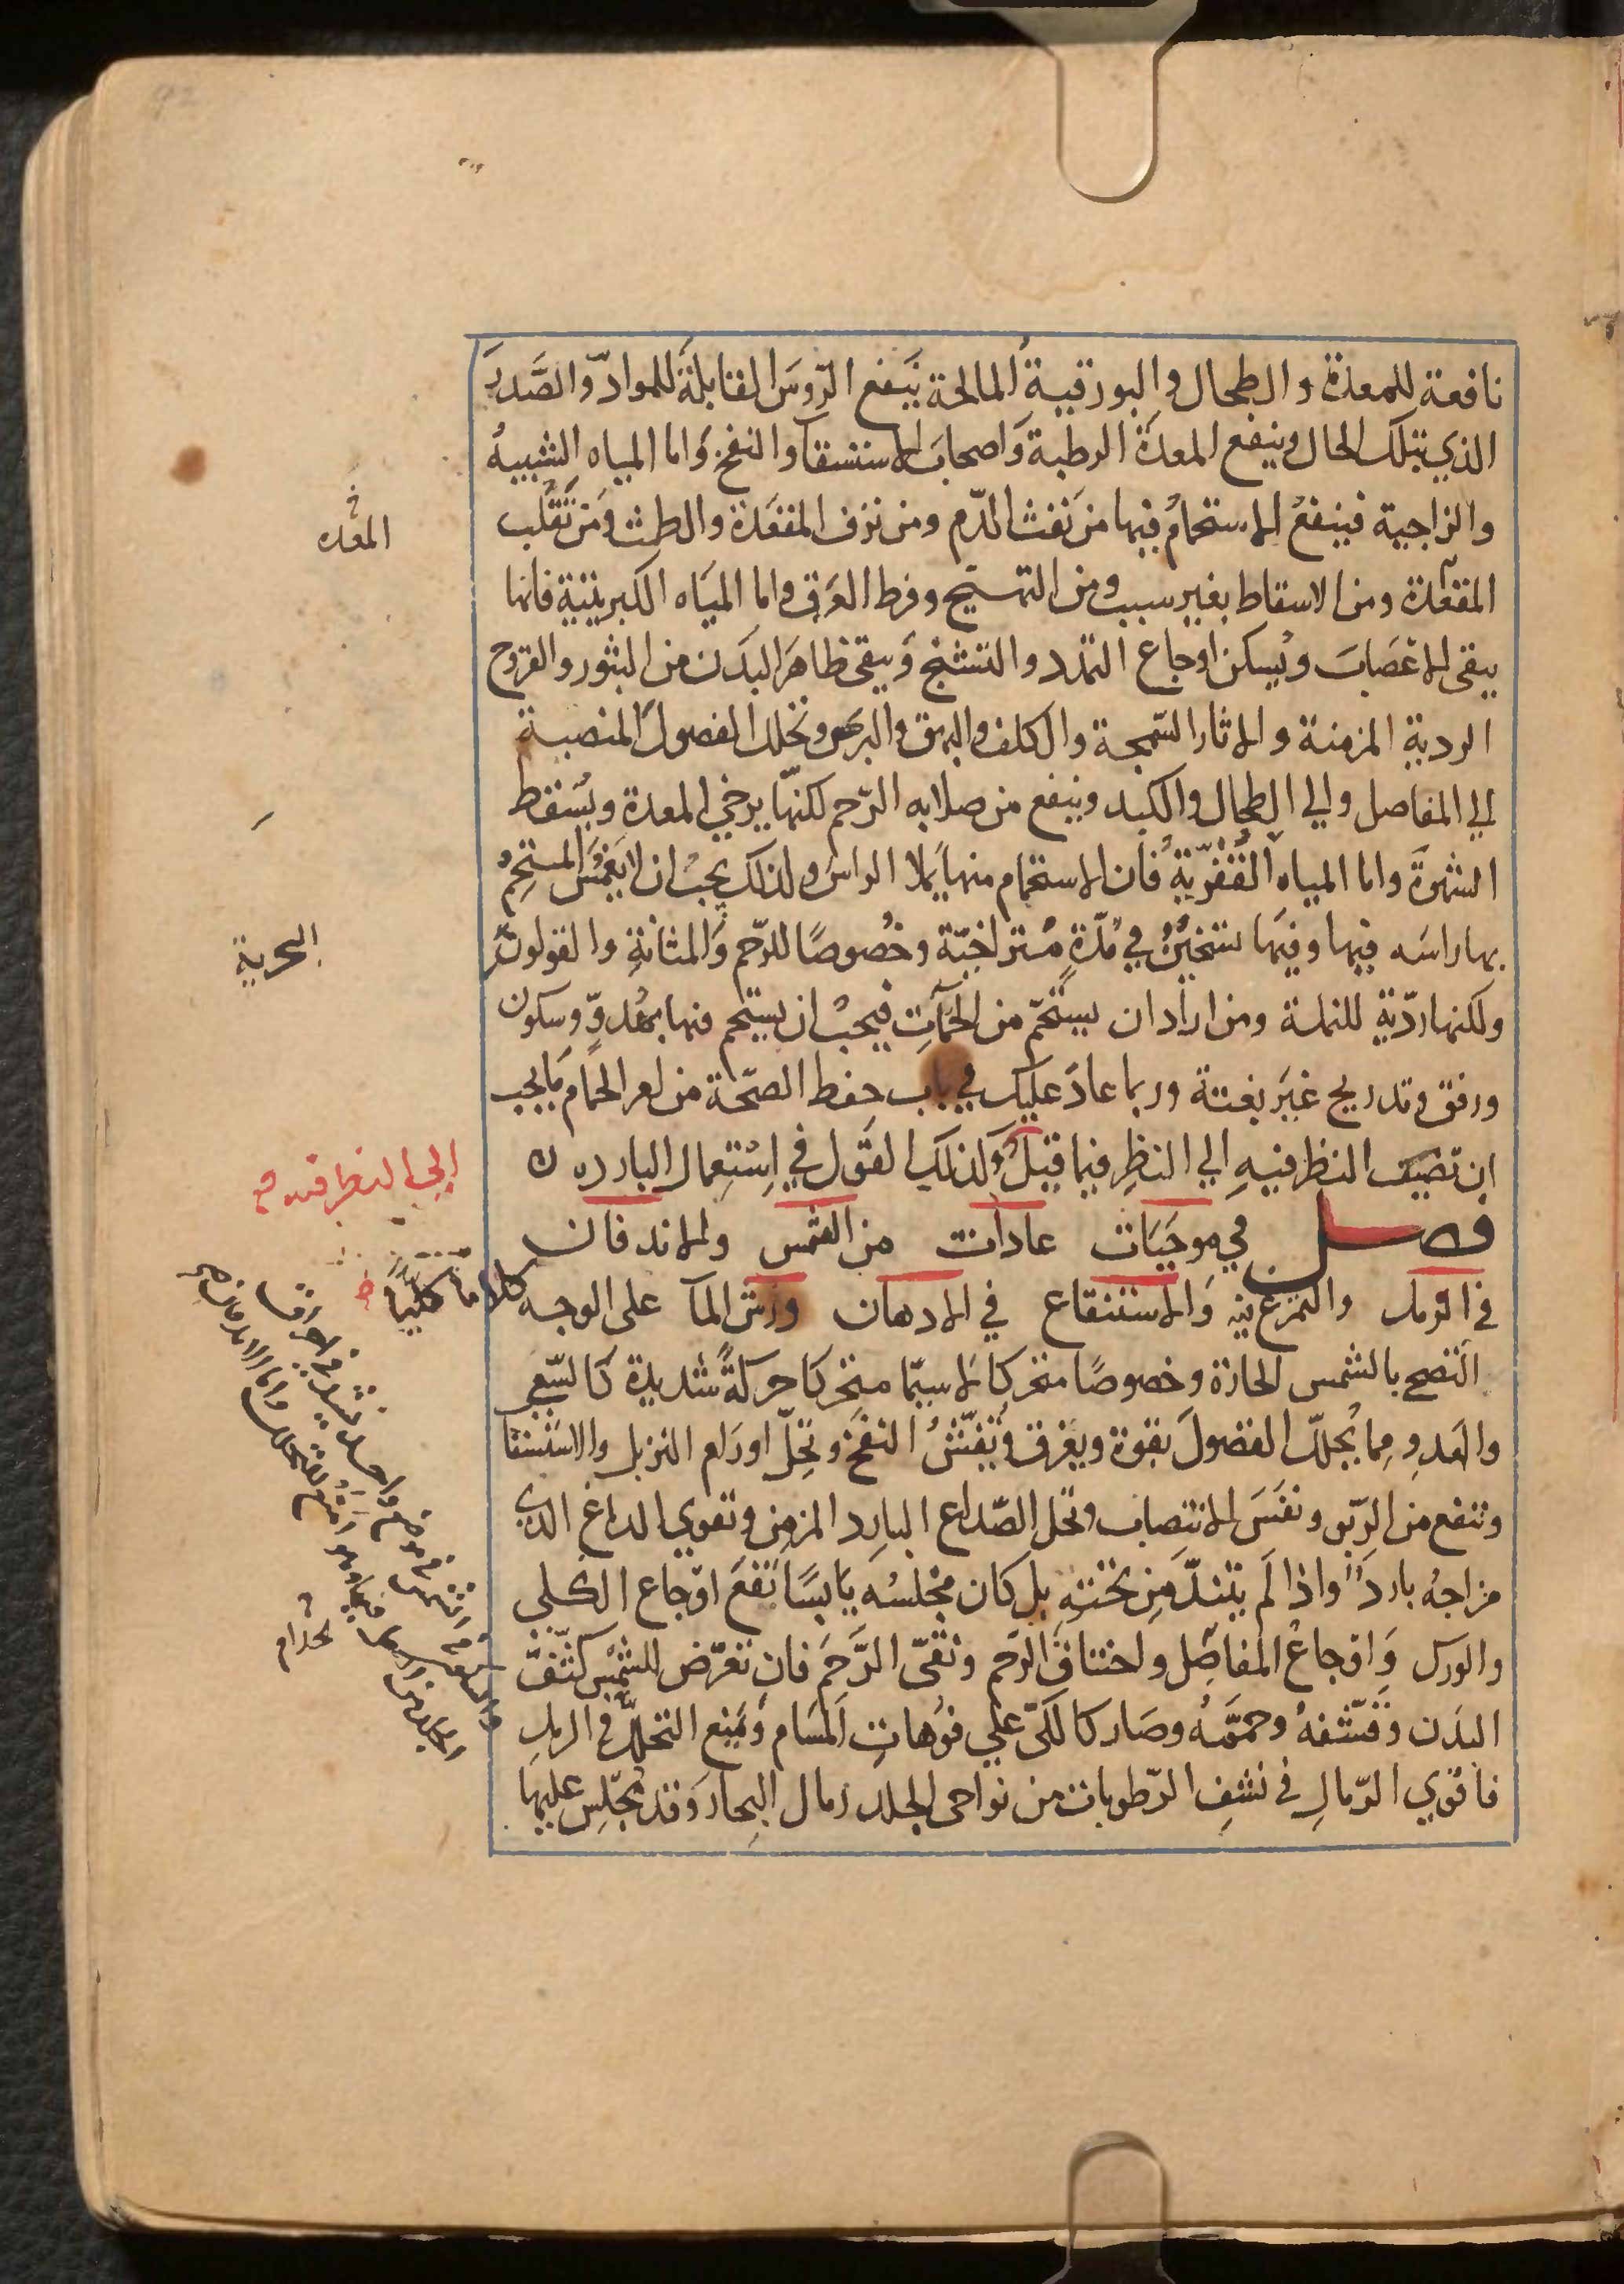 نافعة للمعدة والطحال والبورقية المالحة ينفع الرّوس القابلة للموادّ والصَّدر
الذي بتلك الحال وينفع المعدة الرطبة واصحاب الاستسقا والنفخ واما المياه الشبيه
والزاجية فينفعُ الاستحمامُ فيها من نفث الدّم ومن نزف المقعَدة والطمث ومن تَقَلُّب
المقعدة ومن الاسقاط بغير سبب ومن التهيّج وفرط العَرق واما الميَاه الكبريتية فانها
ينقى الاعصَاب ويُسكن اوجاع التمدد والتشنج وَينقى ظاهَر البدَن من البثور والقروح
الردية المزمنة والاثار السّمجة والكلف والبهق والبرص وتحلل الفضول المنصبة
الي المفاصل والي الطحال والكبد وينفع من صلابه الرّحم لكنّها يرخي المعدة ويُسقط
الشهوة واما المياه القُفْريّة فان الاستحمام منها يملا الراس ولذلك يجبُ ان لا يَغْمسَ المستحِمُّ
بها راسَه فيها وفيها تسخينٌ في مُدّةٍ مُتراخيّة وخُصوصًا للرّحم وَالمثانةِ والقولون
ولكنها ردّية للنملة ومن اراد ان يستحمّ من الحمّآتِ فيجبُ ان يستحم فيها بهُدوّ وسكون
ورفق وتدريج غيَر بغتة وربما عادَ عليك في باب حفظ الصحّة من امر الحمّام مَا يجب
ان تضيف النظر فيهِ الي النظرِ فيما قبلُ وَلذلك القَول في اِسْتِعمال البارده ن
فصل في موجبَات عادات من الشمس والاندفان
في الرمل والتمرّغ فيه وَالاستنقاع في الادهان ورش المآ على الوجه
التضحّ بالشمس الحارّة وخصوصًا متحركا لا سيّما متحركا حركةً شديدة كالسّعي
والعَدوِ مِما يُحللّ الفضولَ بقوة ويعرق ويُفشّشُ النفخ وتحِلّ اورَام التربل والاسْتسقا
وتنفع من الرّبو ونفَسَ الانتصاب وتحل الصّداع البارِد المزمن وتقوي الدماغ الذي
مزاجهُ باردَ واذا لَم يتندّ مِن تحْتهِ بل كان مجْلسُه يابسًا نفعَ اوْجاع الكلى
والورك وَاوْجاعُ المفاصِل واختناق الرّحم ونقّى الرَّحِمَ فان تعرّض للشمْس كثّفت
البدَن وقَشّفهُ وحممَّهُ وصَار كالكَىّ علي فوُهاتِ المسَام ومَنع التحلُّل في الرملِ
فاقوي الرّمالِ في نشفِ الرّطوبات من نواحى الجلد رمال البِحار وَقد يُجلَس عليها
المعده
البحرية
الي النظر فيه
كلاما كليًا